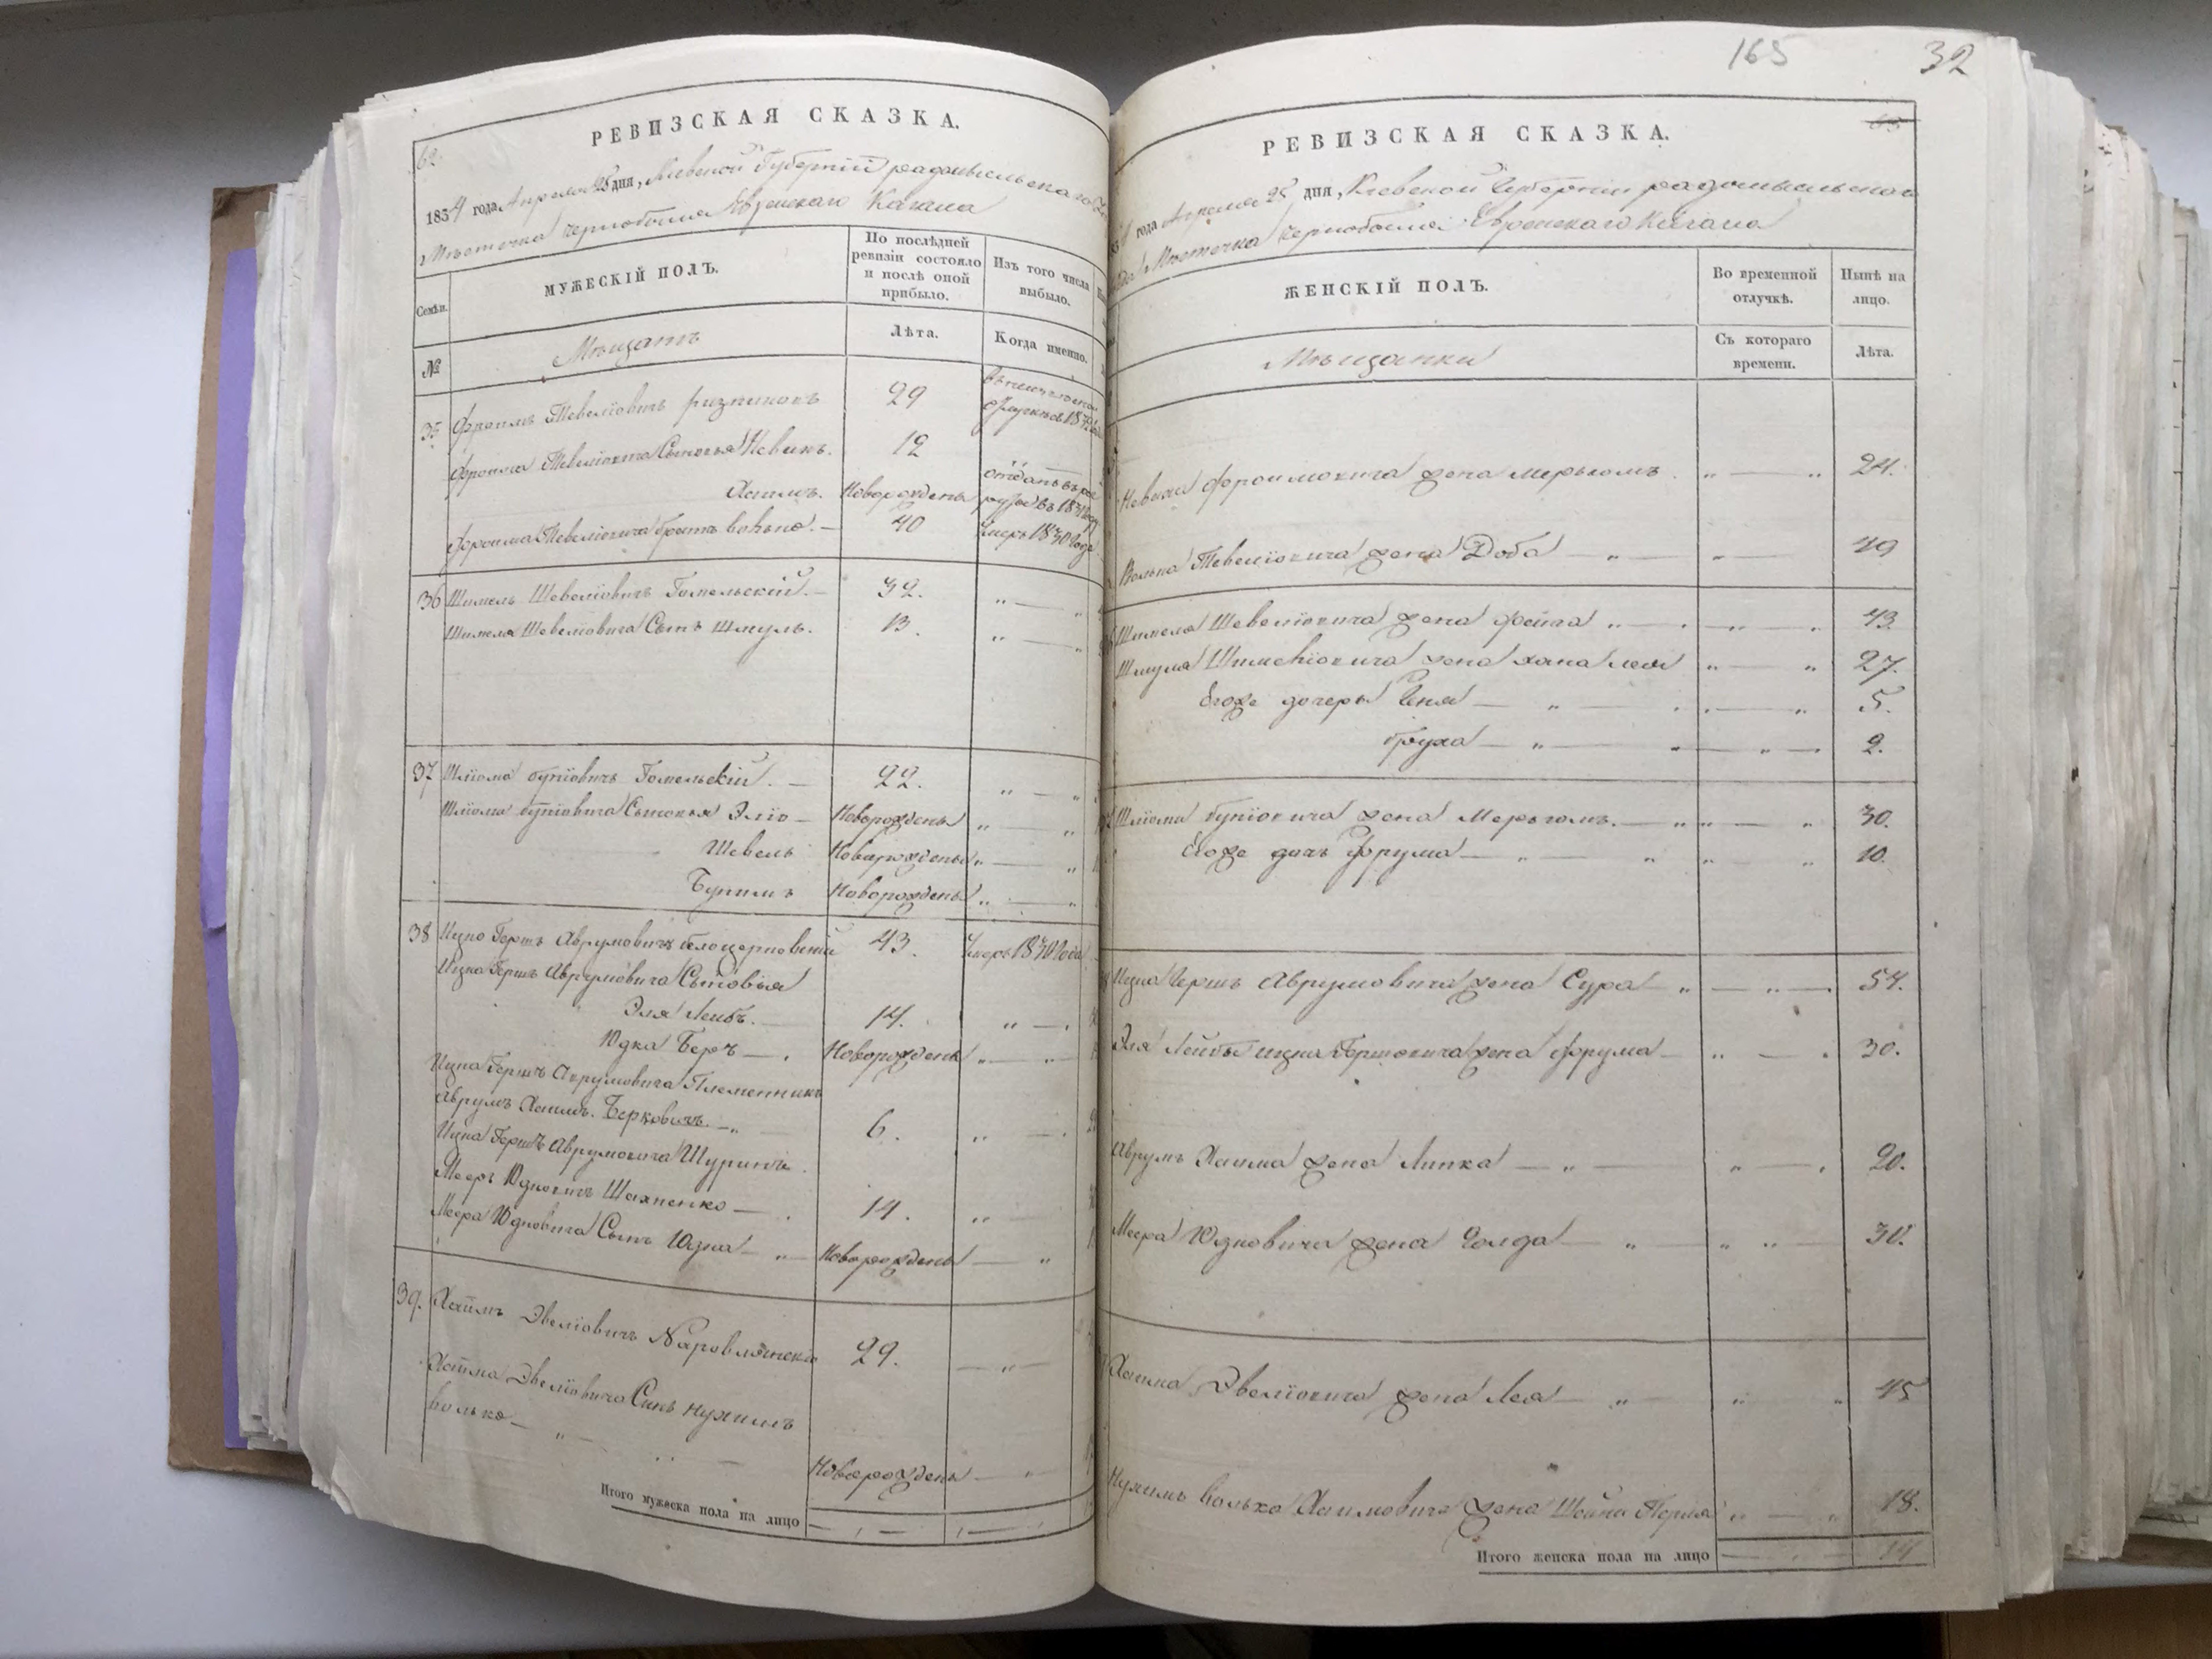 62.
РЕВИЗСКАЯ СКАЗКА.
1834 года Апреля 25 дня, Киевской Губернии радомысльскаго
Местечка Чернобыля Еврейскаго Кагала
Семьи.
МУЖЕСКІЙ ПОЛЪ.
По послѣдней ревизіи состояло и послѣ оной прибыло.
Изъ того числа выбыло.
№
Мещанъ
Лѣта.
Когда именно.
35 Фроимъ Тевеліовичъ 29
Фроима Тевеліовича Сыновья Невахъ. 12
Хаимъ. Новорожденъ отданъ въ рекруты въ 183
Фроима Тевеліовича братъ Волько. — 40 Умеръ 1830 Года
36 Шимель Шевеліовичъ Гомельскій. — 32. „ — „
Шимеля Шевеліовича Сынъ Шмуль. 13. „ — „
37 Шліома Бупіовичъ Гомельскій. — 22. „ — „
Шліома Бупіовича Сыновья Эліо — Новорожденъ „ — „
Шевель Новорожденъ „ — „
Бупимъ Новорожденъ „ — „
38 Ицко Гершъ Аврумовичъ Белоцерковскій 43. Умеръ 1830 Года
Ицка Гершъ Аврумовича Сыновья
Эля Лейбъ. — 14. „ — .
Юдка Беръ — . Новорожденъ „ — „
Ицка Гершъ Аврумовича Племенникъ
Аврумъ Хаимъ Берковичъ. — „ 6. „ — .
Ицка Гершъ Аврумовича Шуринъ
Мееръ Юдковичъ Шахненко — . 14. „ —
Меера Юдковича Сынъ Юдка — „ — Новорожденъ — „
39. Хаимъ Эвеліовичъ Наровлянскій 29. — „ —
Хаима Эвеліовича Сынъ Нухимъ
Волько — „ — Новорожденъ — „
Итого мужеска пола на лицо
165 32
РЕВИЗСКАЯ СКАЗКА.
года Апреля 25 дня, Киевской Губерніи радомысльскаго
Местечка Чернобыля Еврейскаго Кагала
ЖЕНСКІЙ ПОЛЪ.
Во временной отлучкѣ.
Нынѣ на лицо.
Мещанки
Съ котораго времени.
Лѣта.
Неваха Фроимовича жена Мерькомъ . „ — „ 24.
Волька Тевеліовича жена Доба — „ — „ — 49
Шимеля Шевеліовича жена Фейга „ — . „ — . 43
Шмуля Шимеліовича жена Хана Лея „ — „ 27.
Егоже дочеры Геня — „ — . . — „ 5.
Бруха — „ — „ — „ — . 2.
Шліоми Бупіовича жена Мерькомъ. — „ „ — „ 30.
Егоже дочь Фрума — „ „ „ „ 10.
Ицка Гершъ Аврумовича жена Сура — „ — „ — . 54.
Эля Лейбы Ицка Гершовича жена Фрума — „ — . 30.
Аврумъ Хаима жена Липка — „ — „ — . 20.
Меера Юдковича жена Голда — „ — „ „ — 30.
Хаима Эвеліовича жена Лея — „ — „ „ 45
Нухимъ Волька Хаимовича жена Шейна Перля „ — „ 18.
Итого женска пола на лицо — . — 14